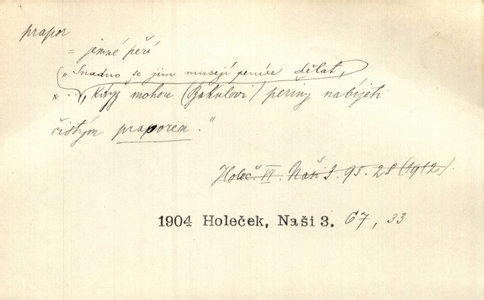 prapor
= jemné peří
(„Snadno se jim musejí peníze dělat,
„ . Když mohou (Bakulovi) peřiny nabíjeti
čistým praporem."
Holeč. VI. Naši I. 95. 28 (1912).
1904 Holeček, Naši 3. 67, 33